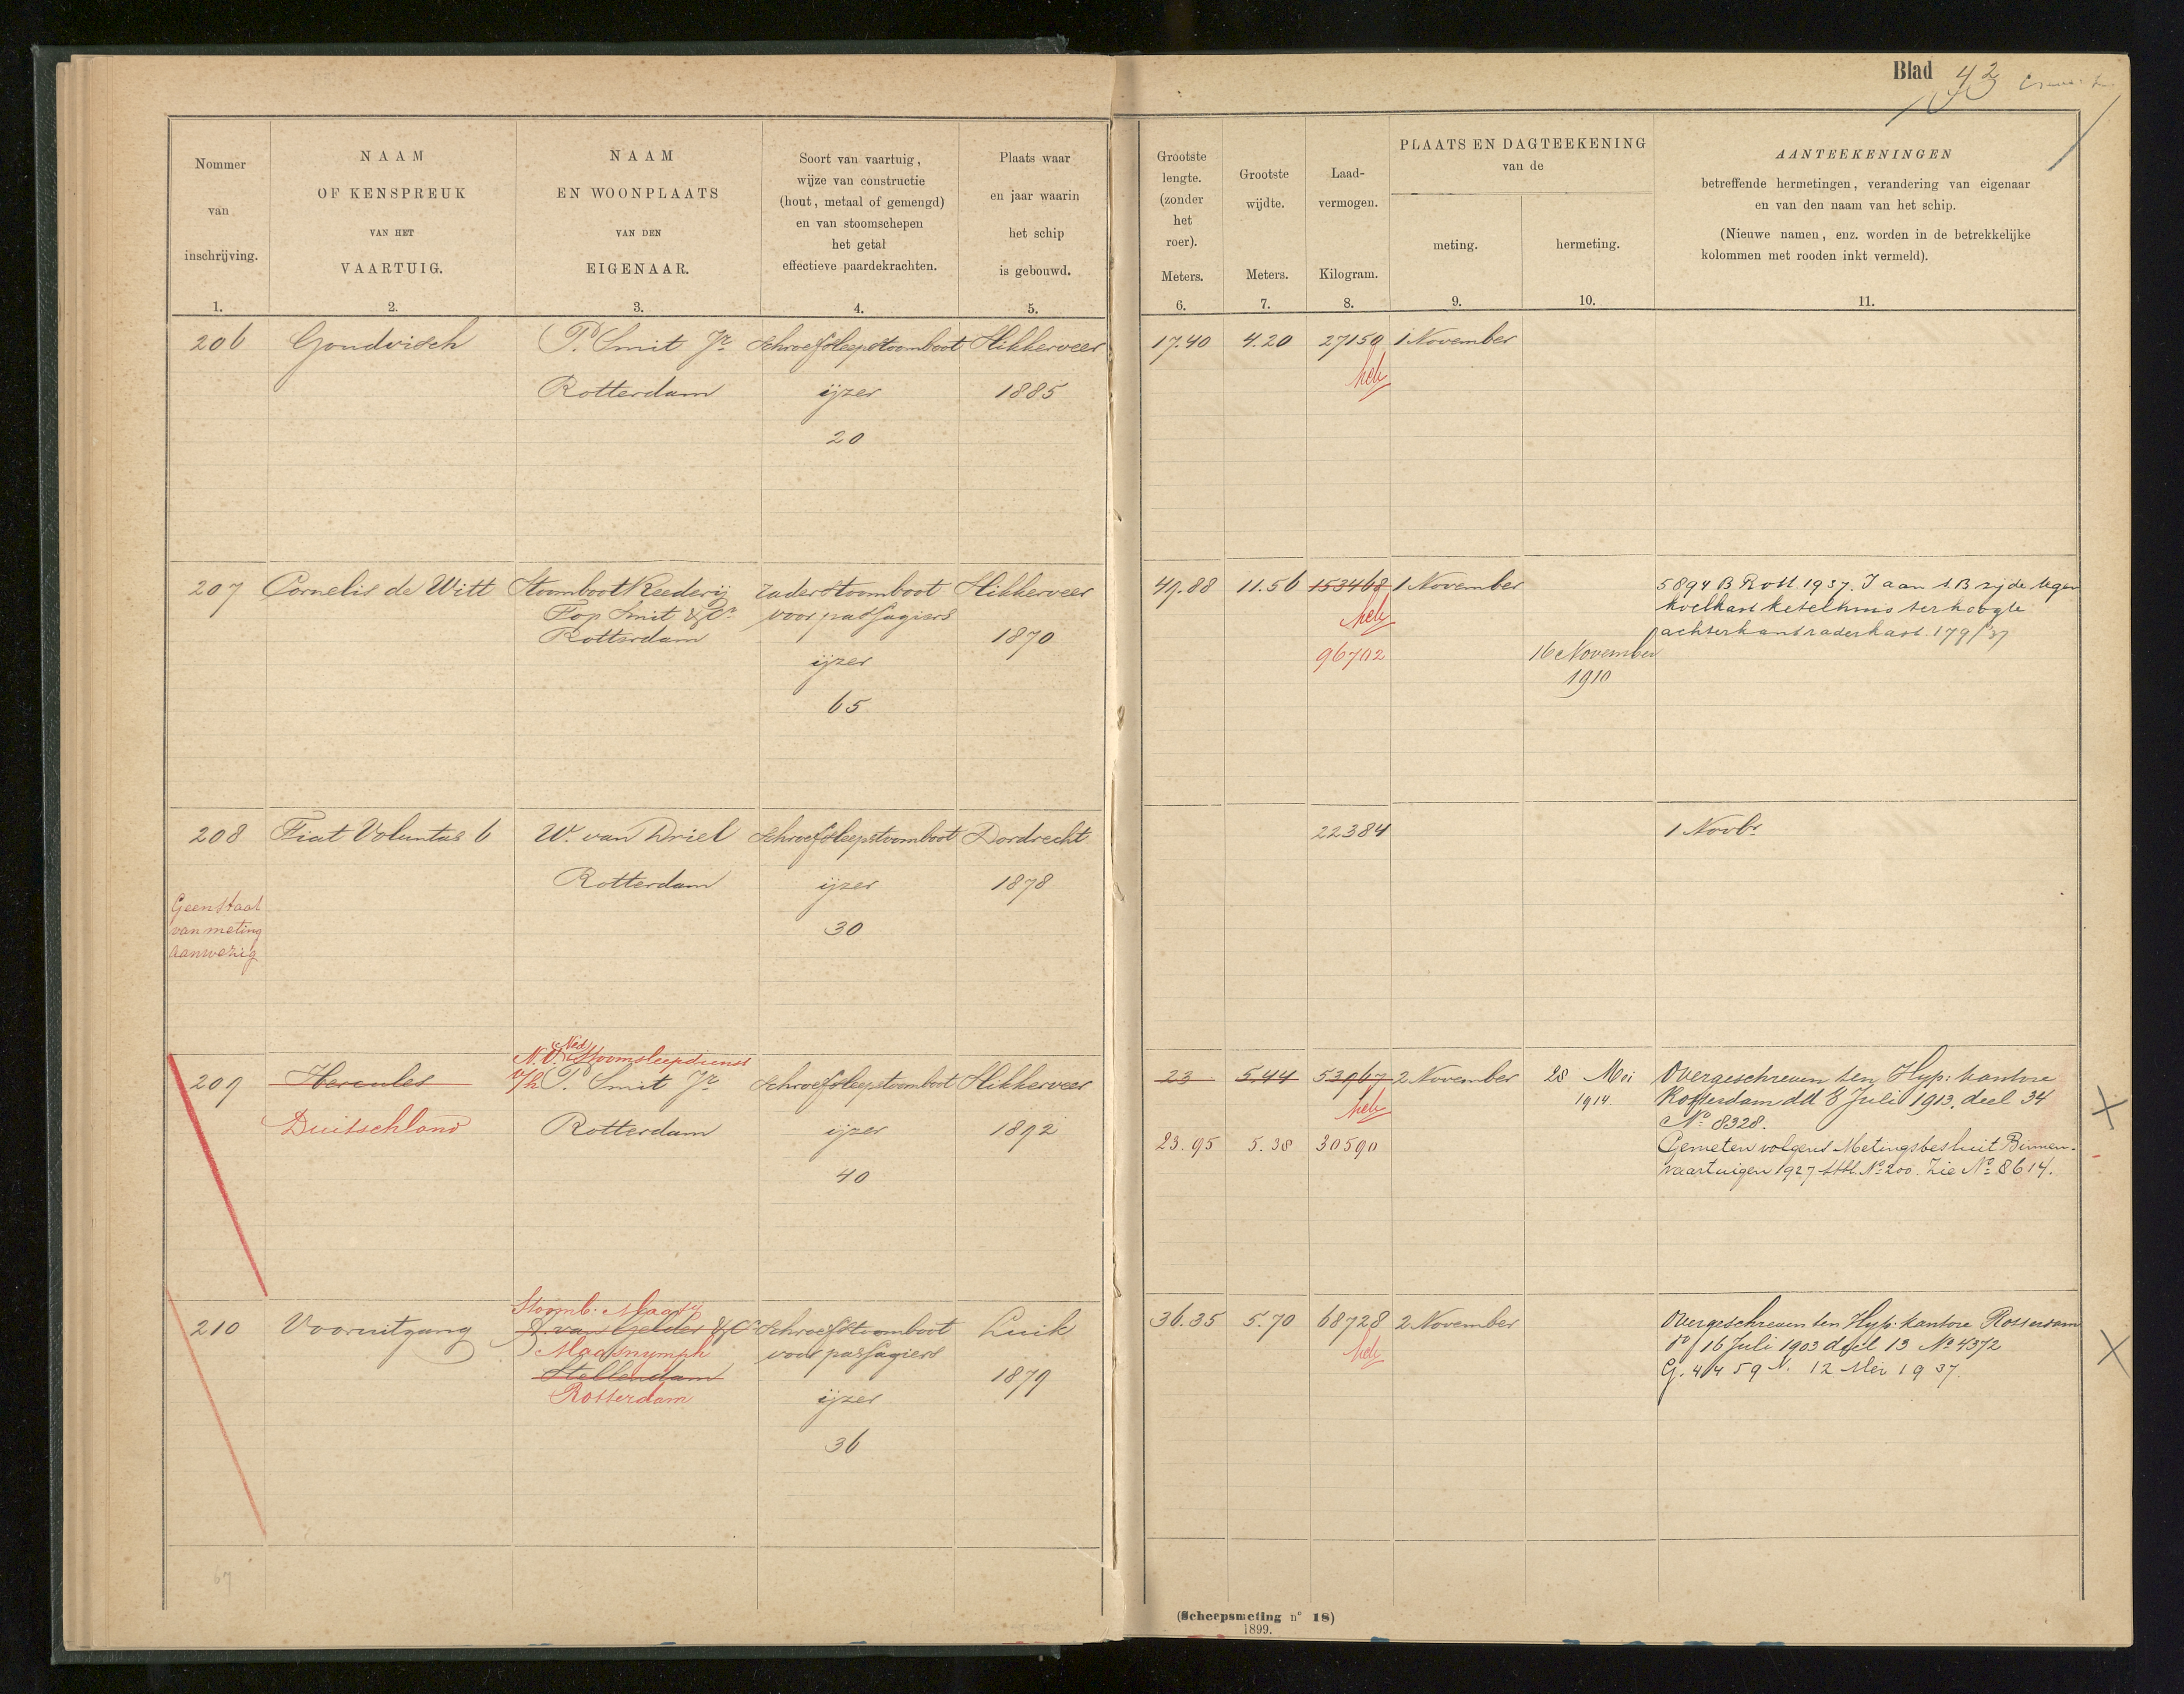 Blad 43
Nommer van inschrijving. 1.
NAAM OF KENSPREUK VAN HET VAARTUIG. 2.
NAAM EN WOONPLAATS VAN DEN EIGENAAR. 3.
Soort van vaartuig, wijze van constructie (hout, metaal of gemengd) en van stoomschepen het getal effectieve paardekrachten. 4.
Plaats waar en jaar waarin het schip is gebouwd. 5.
Grootste lengte. (zonder het roer). Meters. 6.
Grootste wijdte. Meters. 7.
Laad-vermogen. Kilogram. 8.
PLAATS EN DAGTEEKENING van de
meting. 9.
hermeting. 10.
AANTEEKENINGEN
betreffende hermetingen, verandering van eigenaar
en van den naam van het schip.
(Nieuwe namen, enz. worden in de betrekkelijke
kolommen met rooden inkt vermeld).
11.
206 Goudvisch P. Smit Jr. Schroefsleepstoomboot Slikkerveer 17.40 4.20 27150 1 November
Rotterdam ijzer 1885
20
207 Cornelis de Witt Stoomboot Reederij raderstoomboot Slikkerveer 49.88 11.56 153468 1 November 5894 B Rott 1937. J aan S.B zijde tegen
Fop Smit & Co. voor passagiers koelkast ketelhuis ter hoogte
Rotterdam 1870 achterkant raderkast. 179/37
ijzer 96702 16 November
65 1910
208 Fiat Voluntas 6 W. van Driel Schroefsleepstoomboot Dordrecht 22384 1 Novbr
Rotterdam ijzer 1878
Geen staat
van meting 30
aanwezig
N.V. (Ned) Stoomsleepdienst
209 Hercules v/h P. Smit Jr. Schroefsleepstoomboot Slikkerveer 23 5.44 53967 2 November 28 Mei Overgeschreven ten Hyp: kantore
1914. Rotterdam dd 8 Juli 1913, deel 34
Duitschland Rotterdam ijzer 1892 No 8328.
23.95 5.38 30590 Gemeten volgens Metingsbesluit Binnen-
40 vaartuigen 1927 Stbl. No 200. Zie No 8614.
Stoomb. Maatij
210 Vooruitgang A. van Gelder & Co Schroefstoomboot Luik 36.35 5.70 68728 2 November Overgeschreven ten Hyp: kantore Rotterdam
Maasnymph voor passagiers 16 Juli 1903 deel 13 No 4372
Stellendam 1879 G. 4459 N. 12 Mei 1937.
Rotterdam ijzer
36
67
(Scheepsmeting n° 18)
1899.